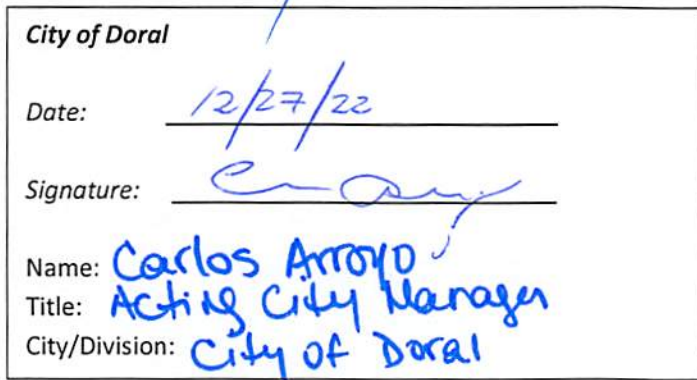 City of Doral
Date: 12/27/22
Signature:
Name: Carlos Arroyo
Title: Acting City Manager
City/Division: City of Doral